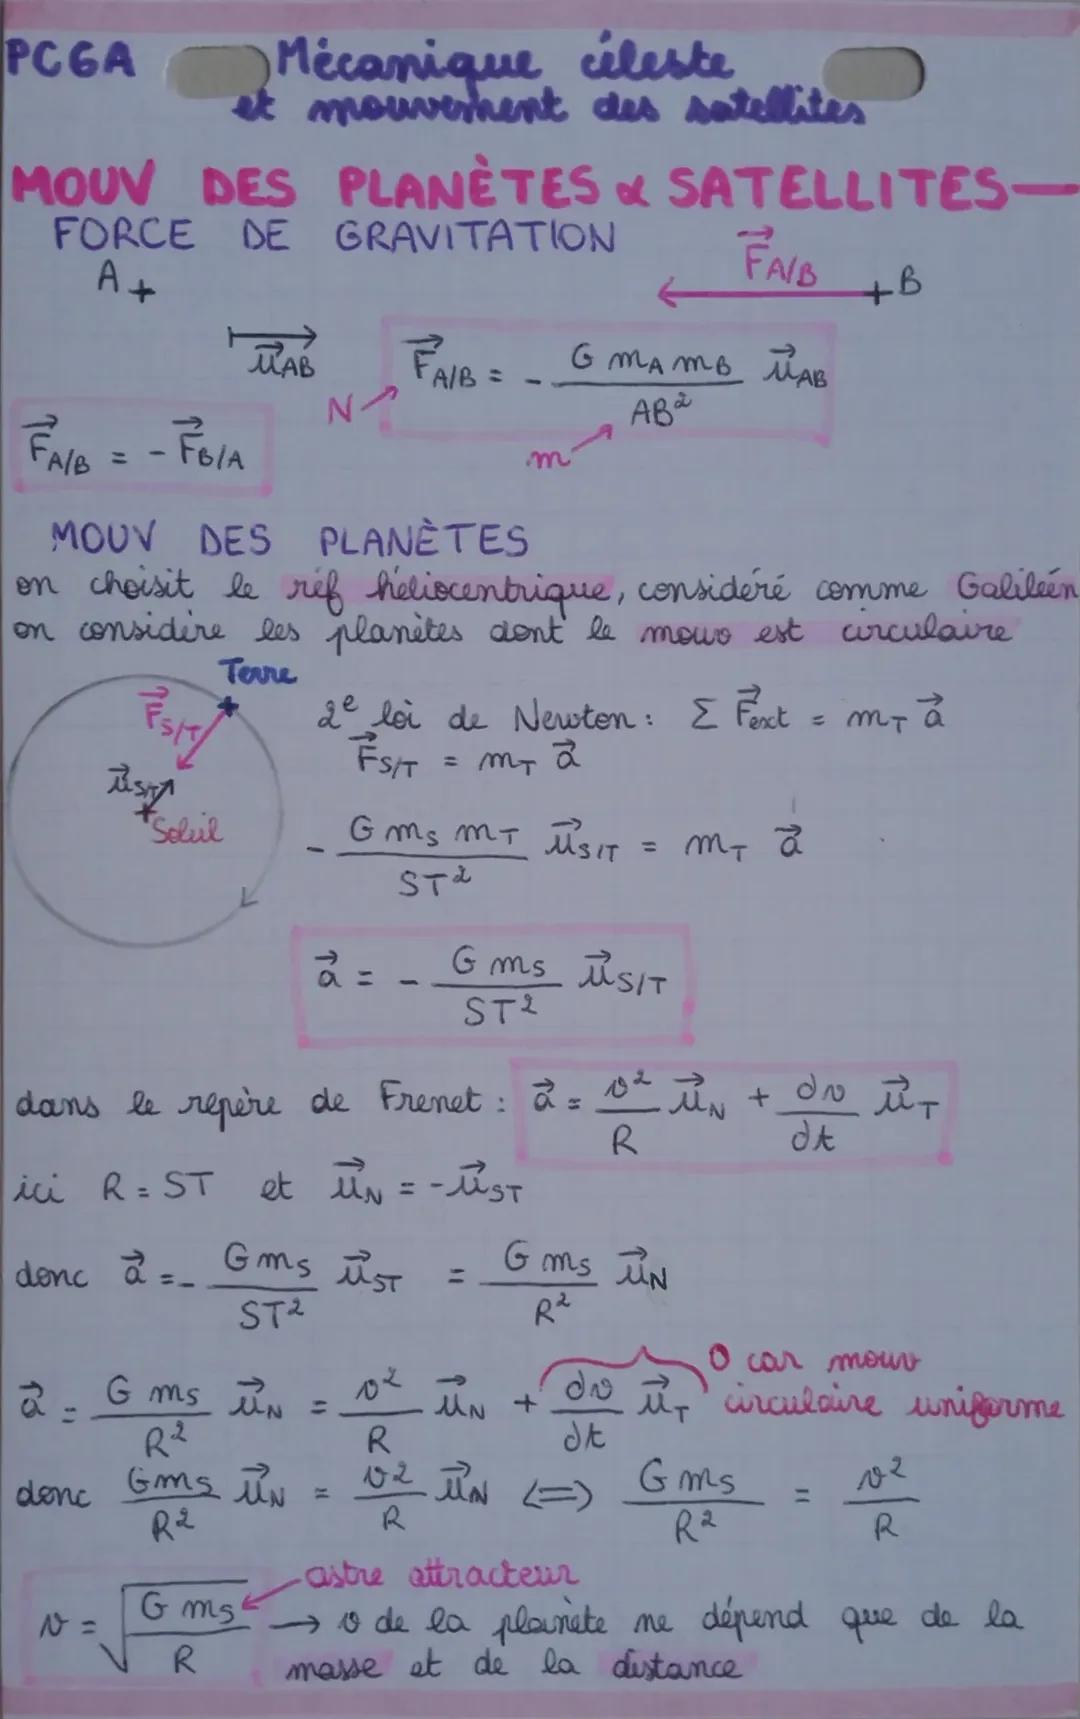 PC6A Mécanique céleste
et mouvement des satellites
MOUV DES PLANÈTES & SATELLITES
FORCE DE GRAVITATION
A + F⃗A/B + B
u⃗AB F⃗A/B = - G mA mB / AB² u⃗AB
N
m
F⃗A/B = - F⃗B/A
MOUV DES PLANÈTES
on choisit le réf héliocentrique, considéré comme Galiléen
on considère les planètes dont le mouv est circulaire
Terre
F⃗S/T
u⃗S/T
Soleil
2e loi de Newton : Σ F⃗ext = mT a⃗
F⃗S/T = mT a⃗
- G mS mT / ST² u⃗S/T = mT a⃗
a⃗ = - G mS / ST² u⃗S/T
dans le repère de Frenet : a⃗ = v²/R u⃗N + dv/dt u⃗T
ici R = ST et u⃗N = - u⃗ST
donc a⃗ = - G mS / ST² u⃗ST = G mS / R² u⃗N
0 car mouv
circulaire uniforme
a⃗ = G mS / R² u⃗N = v²/R u⃗N + dv/dt u⃗T
donc G mS / R² u⃗N = v²/R u⃗N <=> G mS / R² = v²/R
astre attracteur
v = √(G mS / R) → v de la planète ne dépend que de la
masse et de la distance